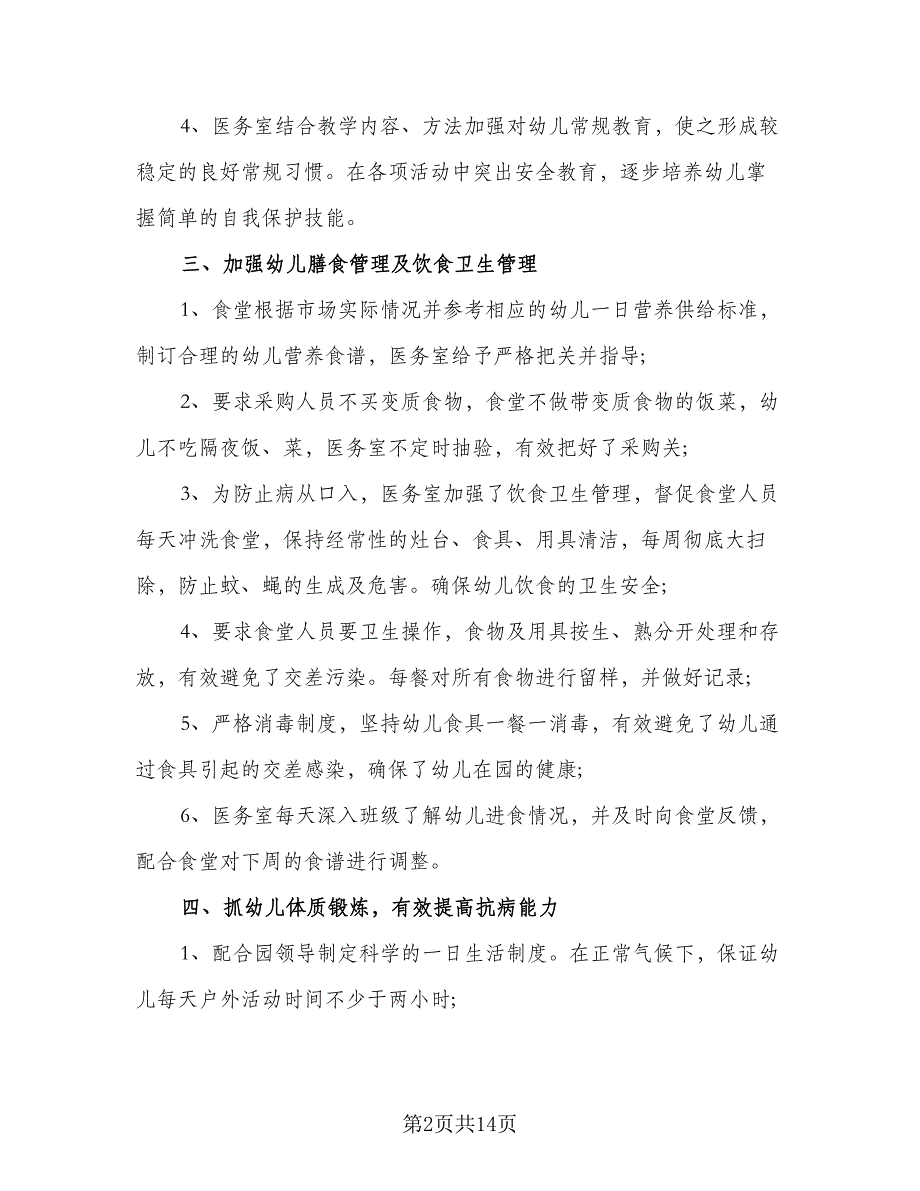 4、医务室结合教学内容、方法加强对幼儿常规教育，使之形成较
稳定的良好常规习惯。在各项活动中突出安全教育，逐步培养幼儿掌
握简单的自我保护技能。
三、加强幼儿膳食管理及饮食卫生管理
1、食堂根据市场实际情况并参考相应的幼儿一日营养供给标准，
制订合理的幼儿营养食谱，医务室给予严格把关并指导;
2、要求采购人员不买变质食物，食堂不做带变质食物的饭菜，幼
儿不吃隔夜饭、菜，医务室不定时抽验，有效把好了采购关;
3、为防止病从口入，医务室加强了饮食卫生管理，督促食堂人员
每天冲洗食堂，保持经常性的灶台、食具、用具清洁，每周彻底大扫
除，防止蚊、蝇的生成及危害。确保幼儿饮食的卫生安全;
4、要求食堂人员要卫生操作，食物及用具按生、熟分开处理和存
放，有效避免了交差污染。每餐对所有食物进行留样，并做好记录;
5、严格消毒制度，坚持幼儿食具一餐一消毒，有效避免了幼儿通
过食具引起的交差感染，确保了幼儿在园的健康;
6、医务室每天深入班级了解幼儿进食情况，并及时向食堂反馈，
配合食堂对下周的食谱进行调整。
四、抓幼儿体质锻炼，有效提高抗病能力
1、配合园领导制定科学的一日生活制度。在正常气候下，保证幼
儿每天户外活动时间不少于两小时;
第2页共14页